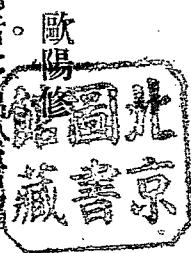 歐陽修
北京
圖書
館藏